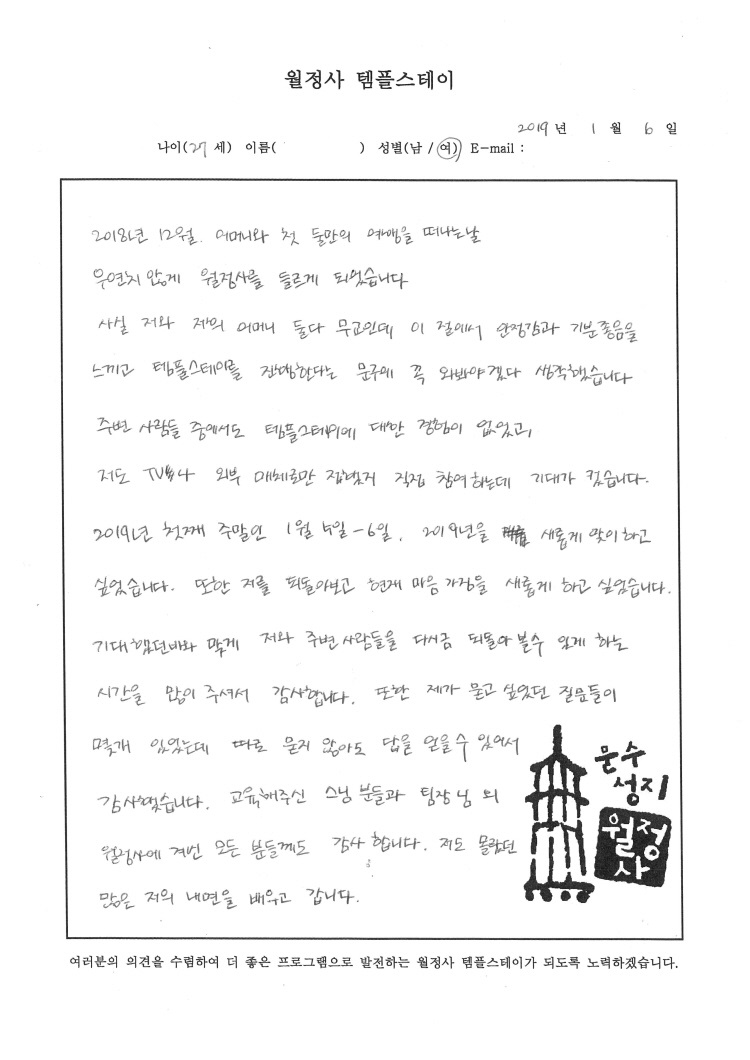 월정사 템플스테이
2019 년 1 월 6 일
나이(27 세) 이름( ) 성별(남 / 여) E-mail :
2018년 12월. 어머니와 첫 둘만의 여행을 떠나는날
우연치 않게 월정사를 들르게 되었습니다
사실 저와 저의 어머니 둘다 무교인데 이 절에서 안정감과 기분좋음을
느끼고 템플스테이를 진행한다는 문구에 꼭 와봐야겠다 생각했습니다
주변 사람들 중에서도 템플스테이에 대한 경험이 없었고,
저도 TV나 외부 매체로만 접했지 직접 참여하는데 기대가 컸습니다.
2019년 첫째 주말인 1월 5일-6일, 2019년을 새롭게 맞이하고
싶었습니다. 또한 저를 되돌아보고 현재 마음가짐을 새롭게 하고 싶었습니다.
기대했던바와 맞게 저와 주변사람들을 다시금 되돌아 볼수 있게 하는
시간을 많이 주셔서 감사합니다. 또한 제가 묻고 싶었던 질문들이
몇개 있었는데 따로 묻지 않아도 답을 얻을수 있어서
감사했습니다. 교육해주신 스님 분들과 팀장님 외
월정사에 계신 모든 분들께도 감사합니다. 저도 몰랐던
많은 저의 내면을 배우고 갑니다.
문수
성지
월정
사
여러분의 의견을 수렴하여 더 좋은 프로그램으로 발전하는 월정사 템플스테이가 되도록 노력하겠습니다.